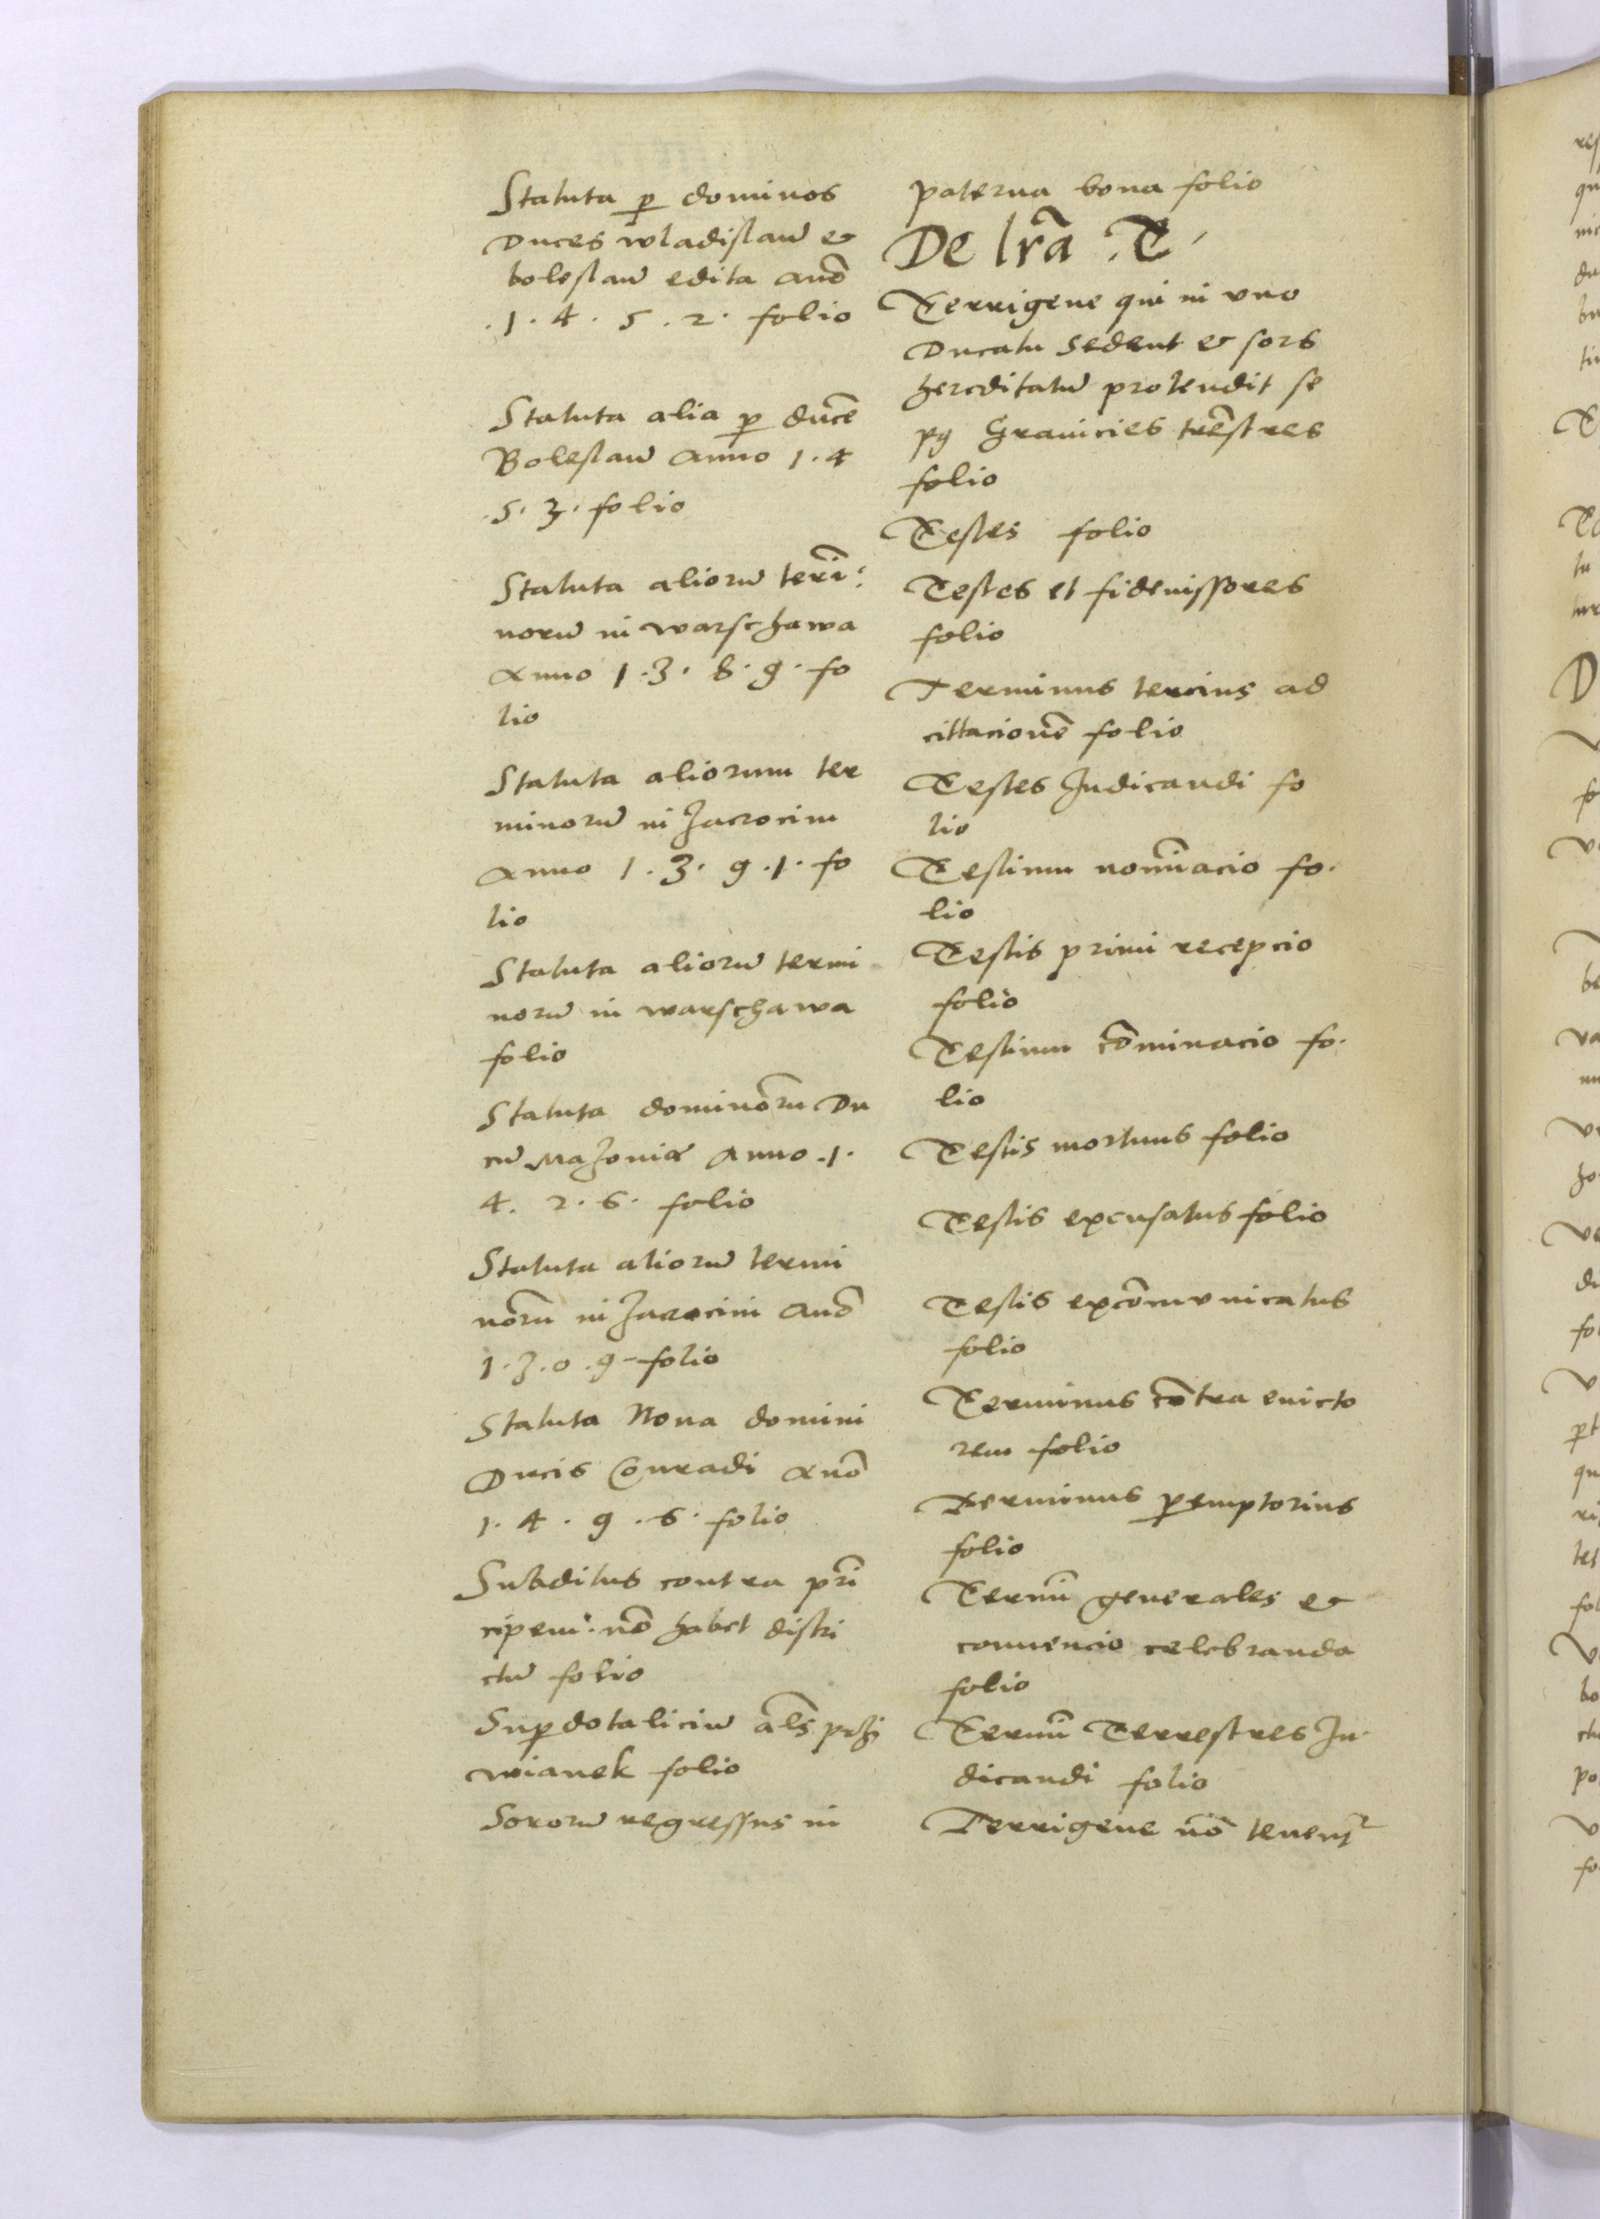 Statuta ꝑ dominos
Duces wladislaũ &
boleslaũ edita anõ
.1.4.5.2. folio
Statuta alia ꝑ ducẽ
Boleslaũ Anno 1.4
.5.3. folio
Statuta aliorũ teri᷈:
norũ in warschawa
Anno 1.3.8.9. fo
lio
Statuta aliorum ter
minorũ in Zacrocim
Anno 1.3.9.1. fo
lio
Statuta aliorũ termi
norũ in warschawa
folio
Statuta dominõru Du
cũ Mazoviæ Anno .1.
4.2.6. folio
Statuta aliorũ termi
nõru in Zacrocim Anõ
1.3.0.9 folio
Statuta Nova domini
Ducis Conradi Anõ
1.4.9.6. folio
Subditus contra pri᷈
cipem: nõ habet distri
ctũ folio
Suꝑdotaliciũ al᷈s przi
wianek folio
Sororũ regressus in
paterna bona folio
De lr᷈a .T.
Terrigene qui in uno
Ducatu sedent & sors
hereditatũ protendit se
Granicies trẽstres
folio
Testes folio
Testes et fideiussores
folio
Terminus tercius ad
cittacionẽ folio
Testes Judicandi fo
lio
Testium nomi᷈acio fo.
lio
Testis primi recepcio
folio
Testium cõminacio fo.
lio
Testis mortuus folio
Testis excusatus folio
Testis excõmunicatus
folio
Terminus cõtra evicto
rem folio
Terminus ꝑemptorius
folio
Termi᷈ generales &
convencio celebranda
folio
Termi᷈ Terrestres Ju
dicandi folio
Terrigene nõ tenent᷑